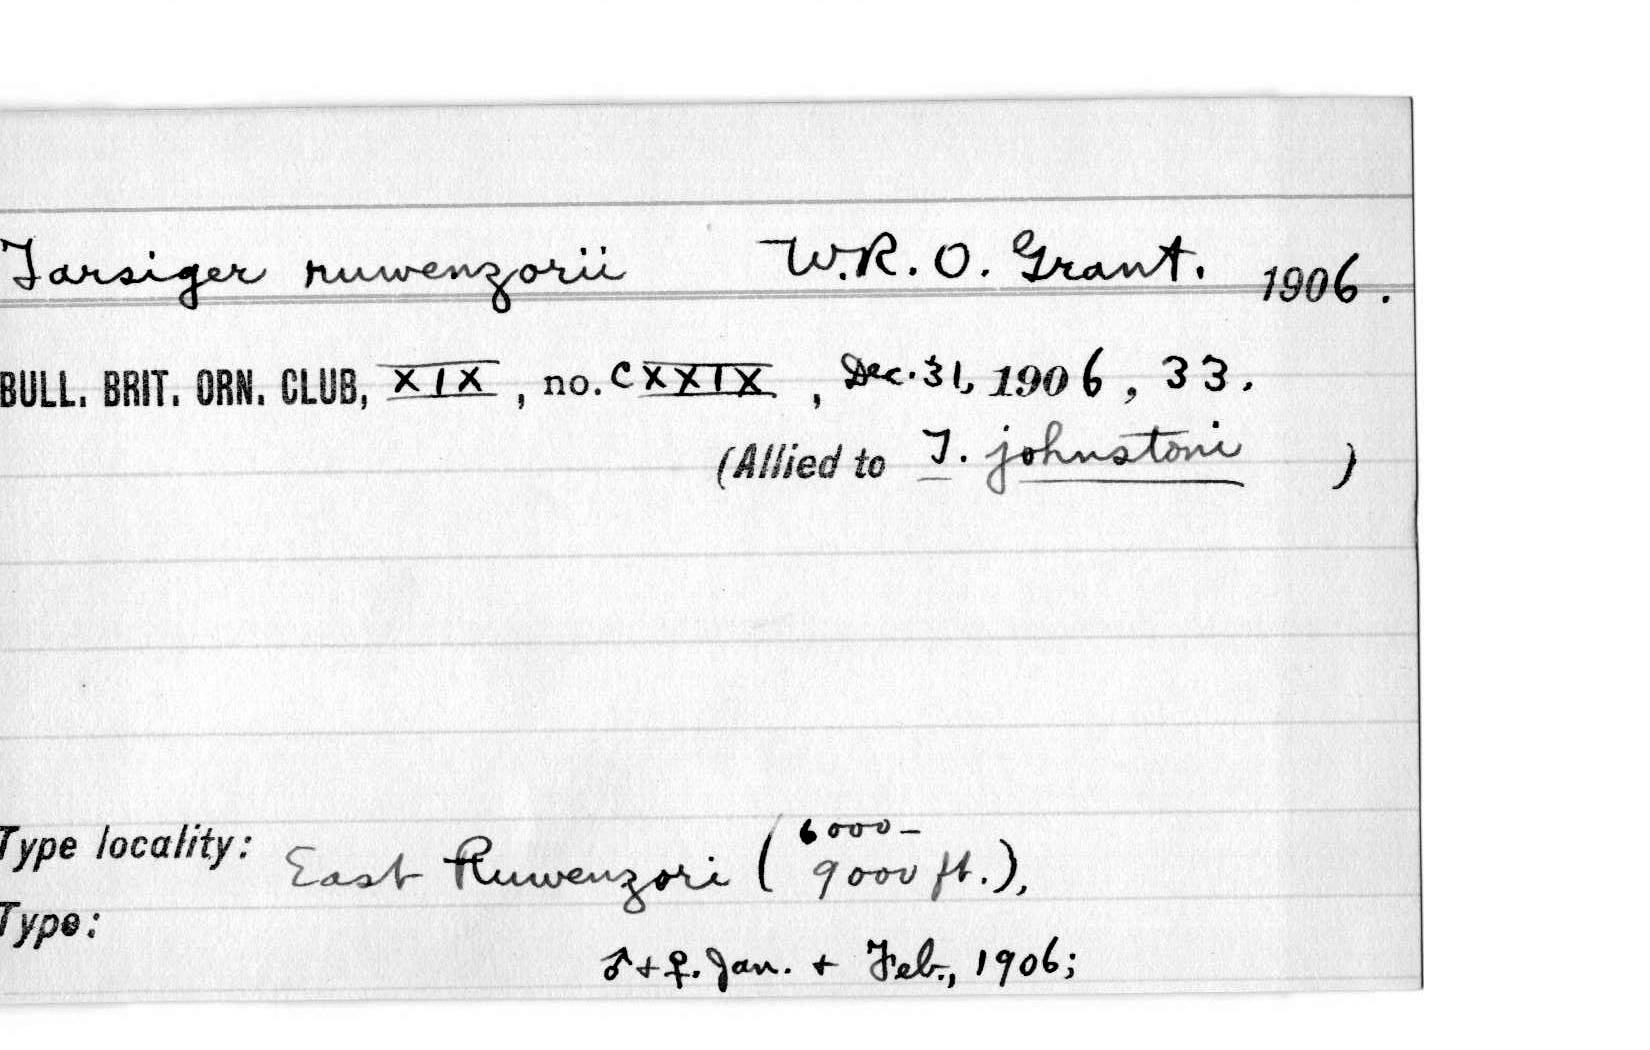 Tarsiger ruwenzorii W.R.O. Grant. 1906.
BULL. BRIT. ORN. CLUB, XIX, no. CXXIX, Dec. 31, 1906, 33.
(Allied to T. johnstoni)
Type locality: East Ruwenzori (6000-
9000 ft.),
Type:
♂ + ♀. Jan. + Feb., 1906;